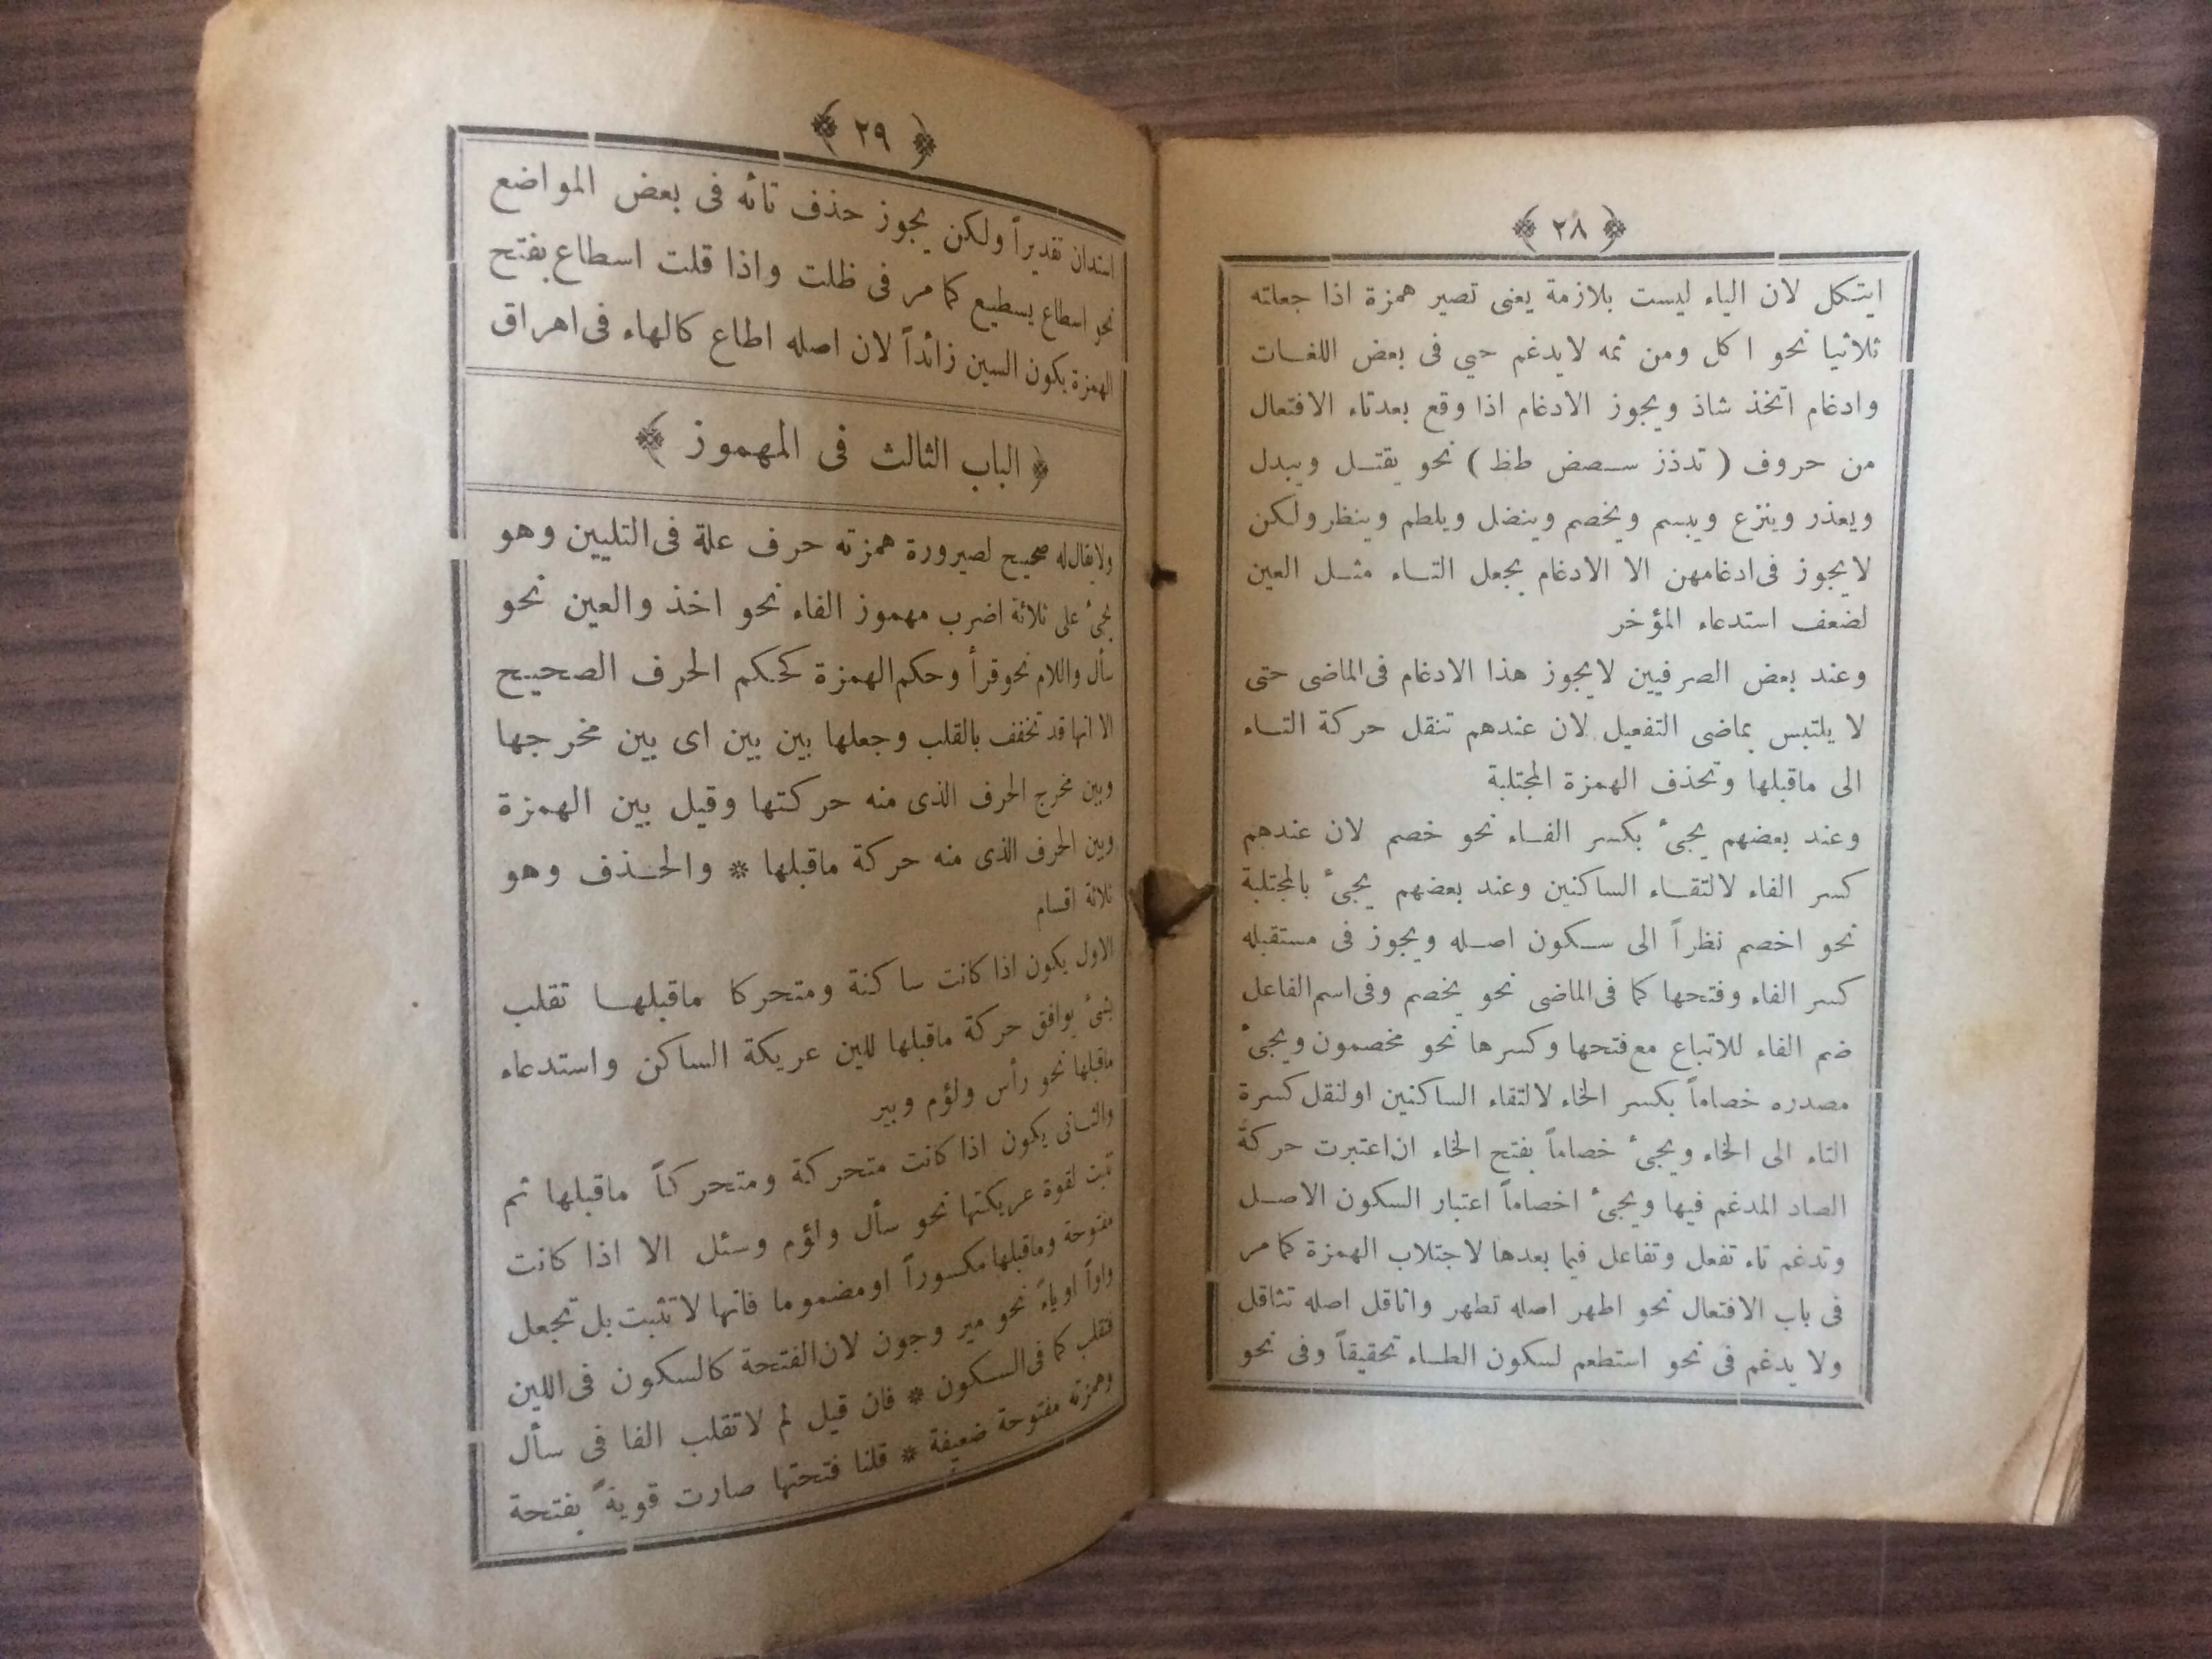 ﴿ ٢٨ ﴾
ايتكل لان الياء ليست بلازمة يعنى تصير همزة اذا جعلته
ثلاثيا نحو ا كل ومن ثمه لايدغم حيي فى بعض اللغات
وادغام اتخذ شاذ ويجوز الادغام اذا وقع بعدتاء الافتعال
من حروف ( تدذز سصض طظ ) نحو يقتل ويبدل
ويعذر وينزع ويبسم ويخصم وينضل ويلطم وينظر ولكن
لايجوز فى ادغامهن الا الادغام بجعل التاء مثل العين
لضعف استدعاء المؤخر
وعند بعض الصرفيين لايجوز هذا الادغام فى الماضى حتى
لا يلتبس بماضى التفعيل لان عندهم تنقل حركة التاء
الى ماقبلها وتحذف الهمزة المجتلبة
وعند بعضهم يجىٔ بكسر الفاء نحو خصم لان عندهم
كسر الفاء لالتقاء الساكنين وعند بعضهم يجىٔ بالمجتلبة
نحو اخصم نظراً الى سكون اصله ويجوز فى مستقبله
كسر الفاء وفتحها كما فى الماضى نحو يخصم وفى اسم الفاعل
ضم الفاء للاتباع مع فتحها وكسرها نحو مخصمون ويجىٔ
مصدره خصاماً بكسر الخاء لالتقاء الساكنين اولنقل كسرة
التاء الى الخاء ويجىٔ خصاماً بفتح الخاء ان اعتبرت حركة
الصاد المدغم فيها ويجىٔ اخصاماً اعتبار السكون الاصل
وتدغم تاء تفعل وتفاعل فيما بعدها لاجتلاب الهمزة كما مر
فى باب الافتعال نحو اطهر اصله تطهر واثاقل اصله تثاقل
ولا يدغم فى نحو استطعم لسكون الطاء تحقيقاً وفى نحو
﴿ ٢٩ ﴾
استدان تقديراً ولكن يجوز حذف تائه فى بعض المواضع
نحو اسطاع يسطيع كما مر فى ظلت واذا قلت اسطاع بفتح
الهمزة يكون السين زائداً لان اصله اطاع كالهاء فى اهراق
﴿ الباب الثالث فى المهموز ﴾
ولايقال له صحيح لصيرورة همزته حرف علة فى التليين وهو
يجىٔ على ثلاثة اضرب مهموز الفاء نحو اخذ والعين نحو
سأل واللام نحو قرأ وحكم الهمزة كحكم الحرف الصحيح
الا انها قد تخفف بالقلب وجعلها بين بين اى بين مخرجها
وبين مخرج الحرف الذى منه حركتها وقيل بين الهمزة
وبين الحرف الذى منه حركة ماقبلها * والحذف وهو
ثلاثة اقسام
الاول يكون اذا كانت ساكنة ومتحركا ماقبلها تقلب
بشىٔ يوافق حركة ماقبلها للين عريكة الساكن واستدعاء
ماقبلها نحو رأس ولؤم وبير
والثانى يكون اذا كانت متحركة ومتحركاً ماقبلها ثم
تبت لقوة عريكتها نحو سأل ولؤم وسئل الا اذا كانت
مفتوحة وماقبلها مكسوراً اومضموما فانها لاتثبت بل تجعل
واواً اوياءً نحو مير وجون لان الفتحة كالسكون فى اللين
فتقلب كما فى السكون * فان قيل لم لاتقلب الفا فى سأل
وهمزته مفتوحة ضعيفة * قلنا فتحتها صارت قوية بفتحة